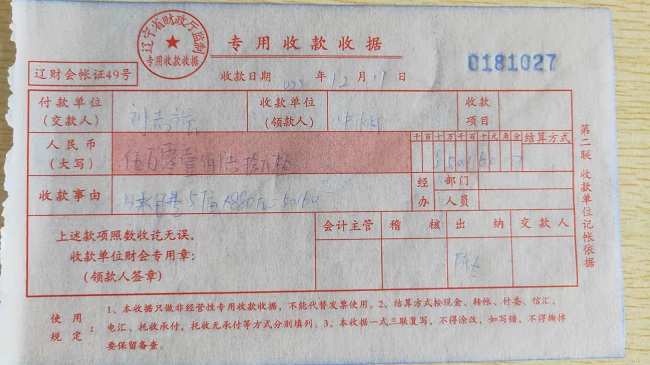 辽宁省财政厅监制
专用收款收据
专用收款收据
0181027
辽财会帐证49号
收款日期 年 12 月 17 日
付款单位
(交款人)
收款单位
(领款人)
收款
项目
人民币
(大写)
伍万零壹佰陆拾元整
千百十万千百十元角分
结算方式
¥5016000
收款事由
经 部门
办 人员
上述款项照数收讫无误。
收款单位财会专用章:
(领款人签章)
会计主管
稽 核
出 纳
交款人
第二联 收款单位记帐依据
使用规定:
1、本收据只做非经营性专用收款收据,不能代替发票使用。2、结算方式按现金、转帐、付委、信汇、
电汇、托收承付,托收无承付等方式分别填列。3、本收据一式三联复写,不得涂改,如写错,不得撕掉
要保留备查。